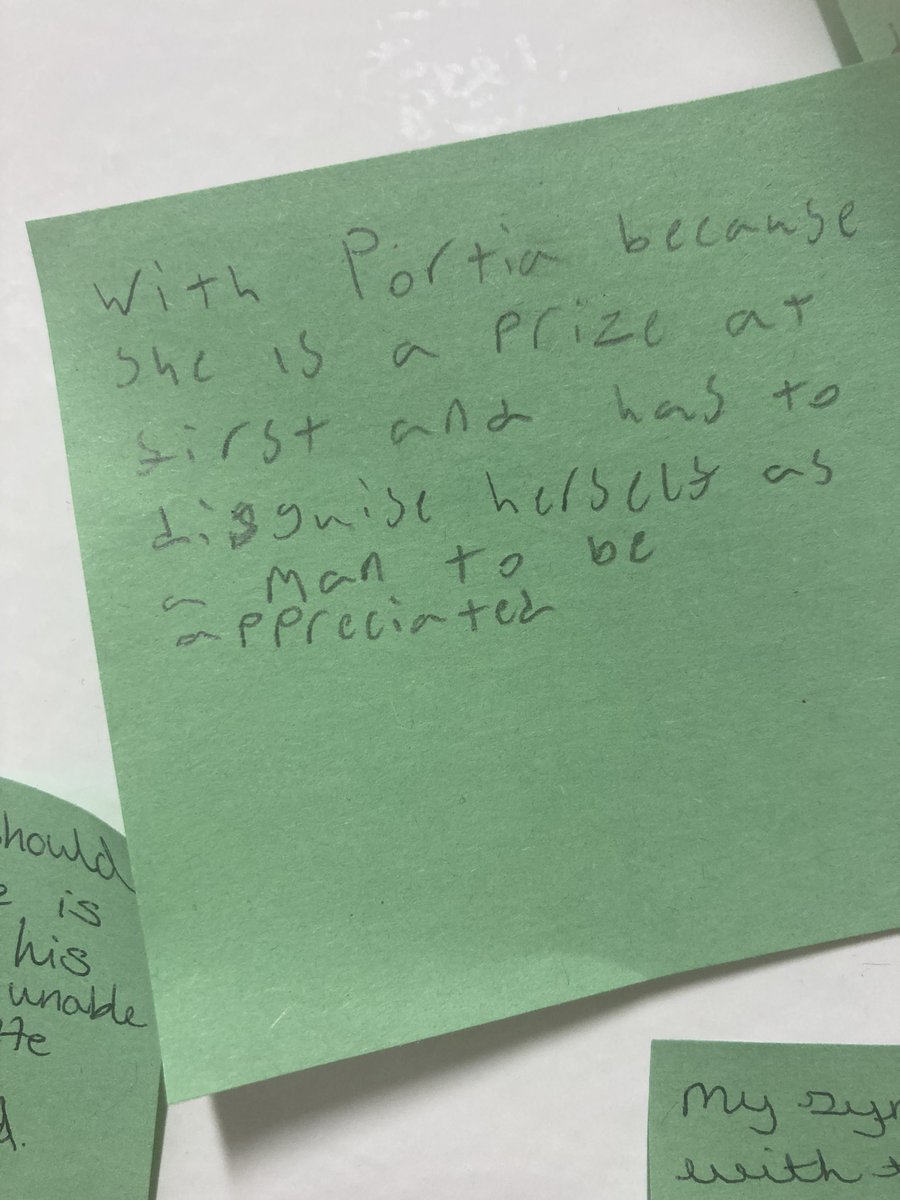 With Portia because
she is a prize at
first and has to
disguise herself as
a man to be
appreciated
should
is
his
unable
He
My
with